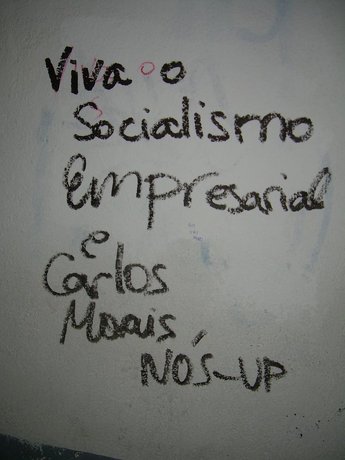 Viva o
Socialismo
Empresarial
e
Carlos
Morais,
NÓS-UP